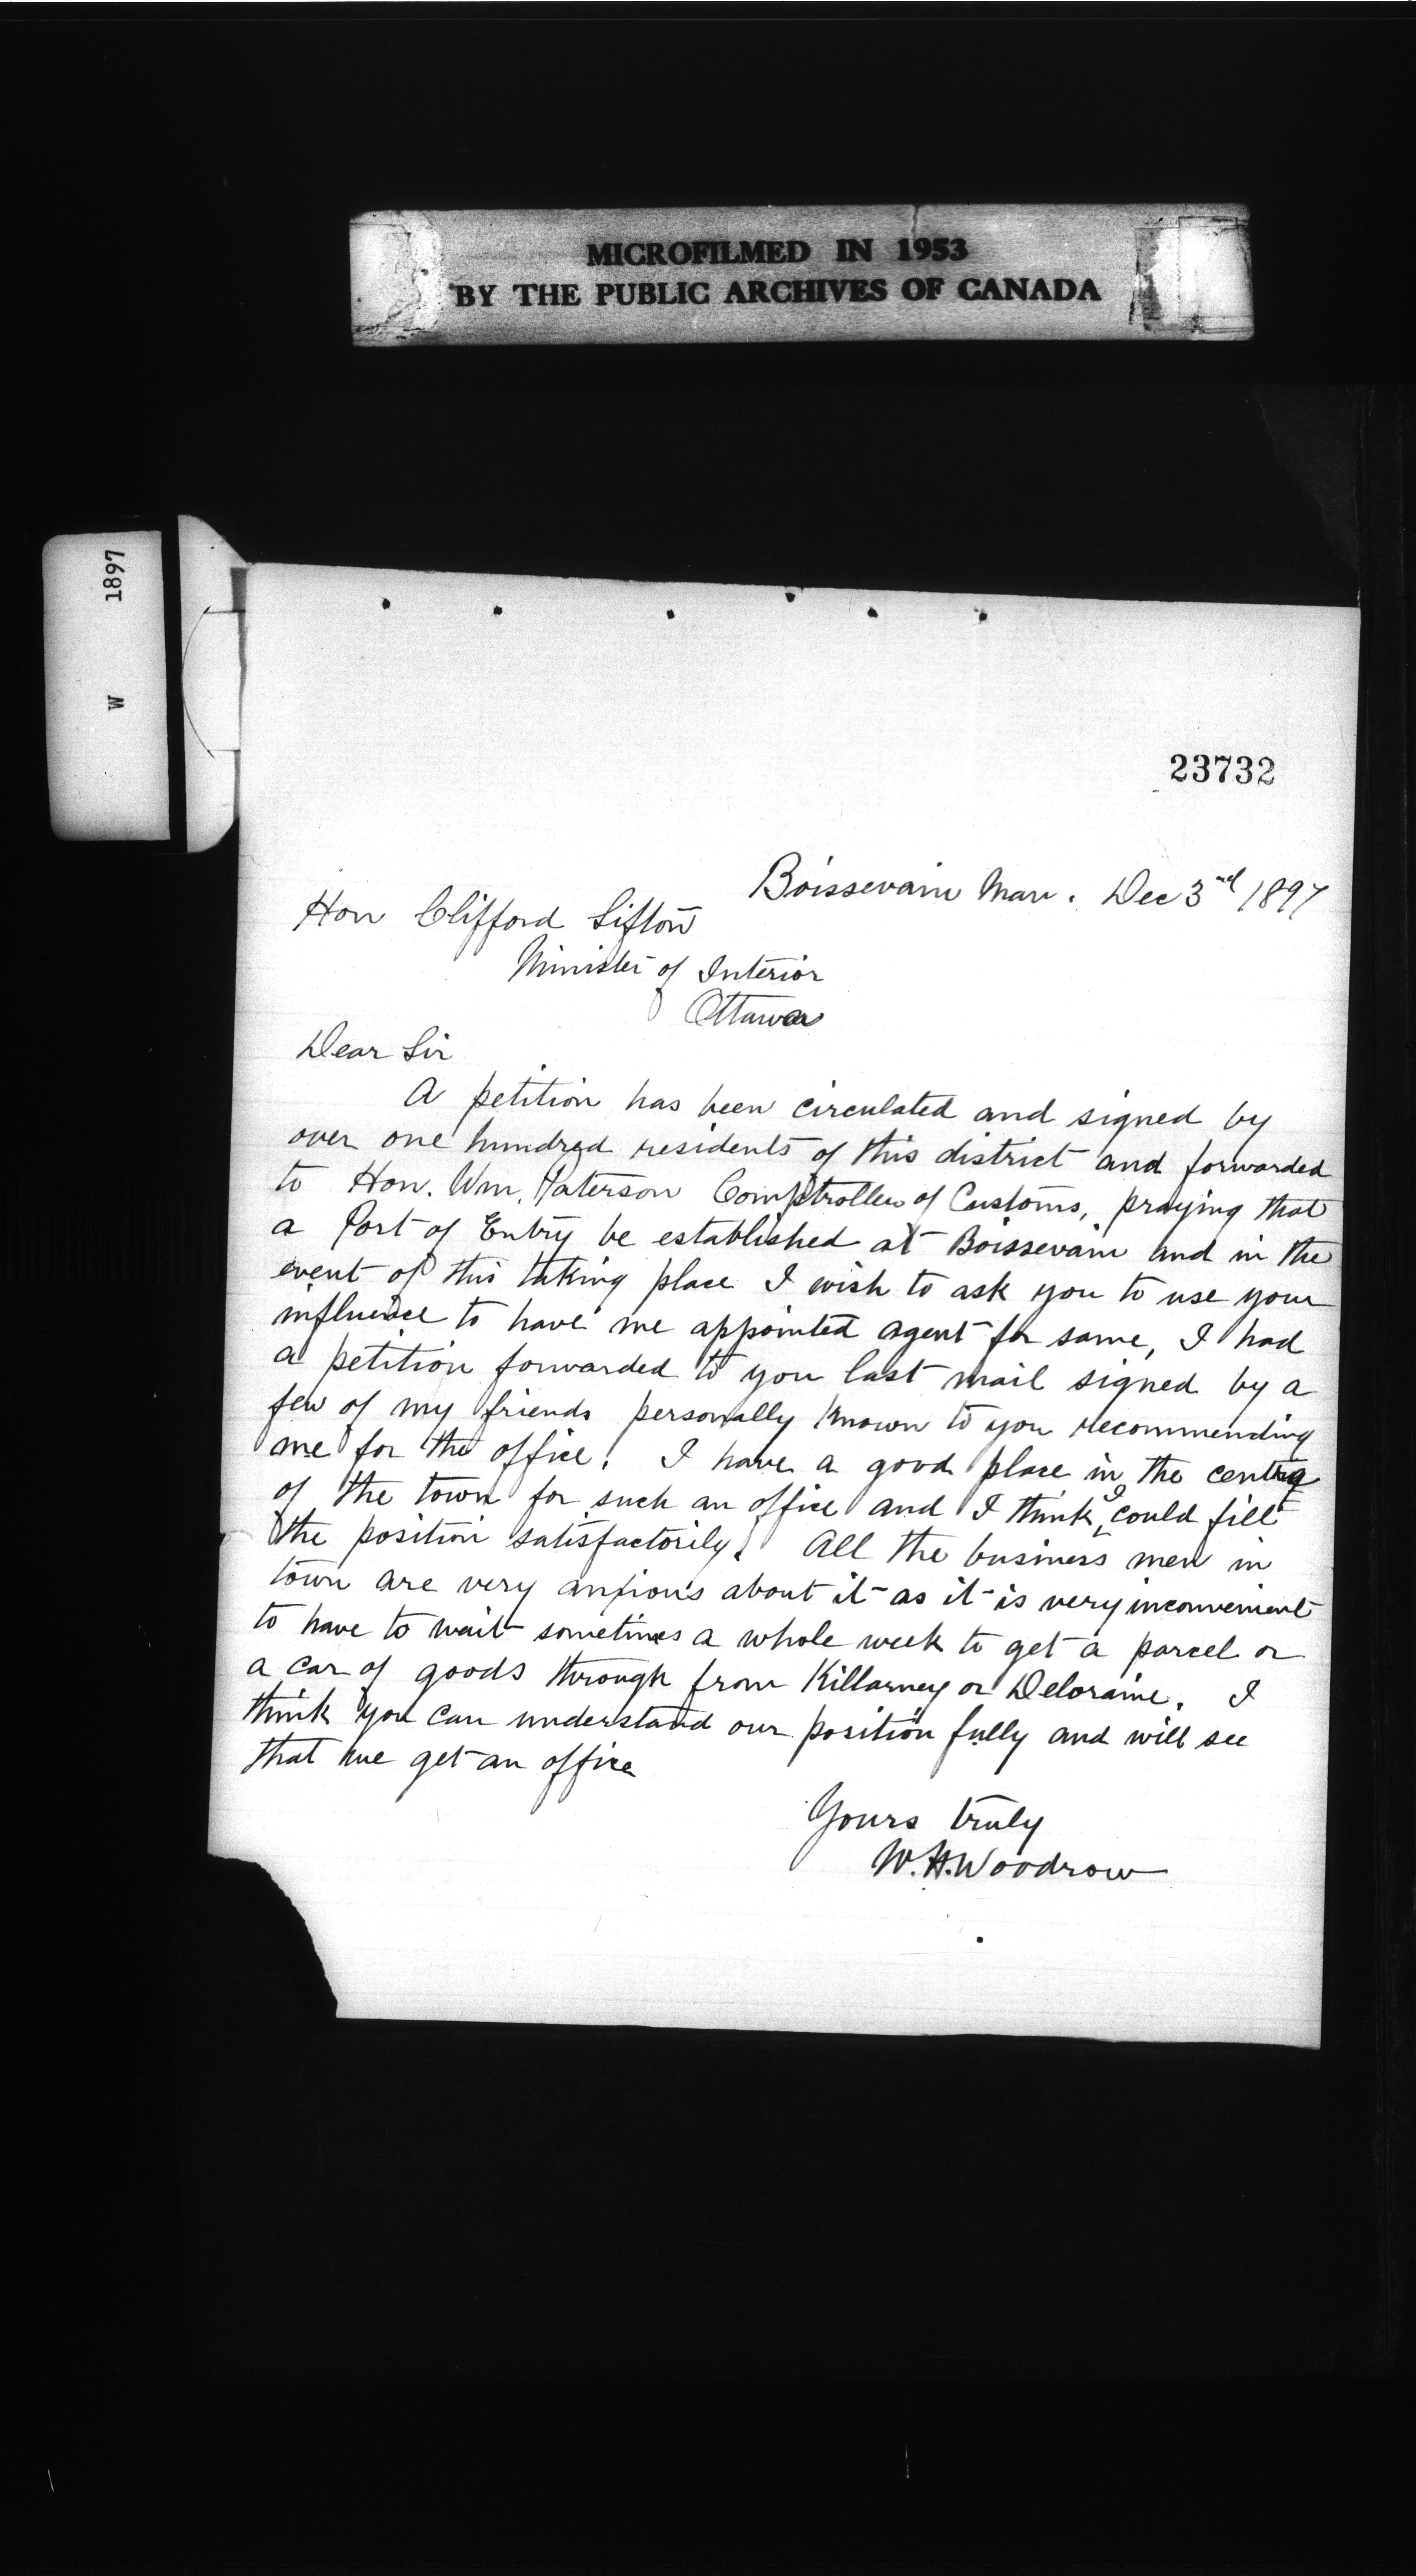 MICROFILMED IN 1953
BY THE PUBLIC ARCHIVES OF CANADA
W 1897
23732
Boissevain Man. Dec 3rd 1897
Hon Clifford Sifton
Minister of Interior
Ottawa
Dear Sir
A petition has been circulated and signed by
over one hundred residents of this district and forwarded
to Hon. Wm. Paterson Comptroller of Customs, praying that
a Port of Entry be established at Boissevain and in the
event of this taking place I wish to ask you to use your
influence to have me appointed agent for same, I had
a petition forwarded to you last mail signed by a
few of my friends personally known to you recommending
me for the office. I have a good place in the centre
of the town for such an office and I think I could fill
the position satisfactorily. All the business men in
town are very anxious about it as it is very inconvenient
to have to wait sometimes a whole week to get a parcel or
a car of goods through from Killarney or Deloraine. I
think you can understand our position fully and will see
that we get an office
Yours truly
W. H. Woodrow